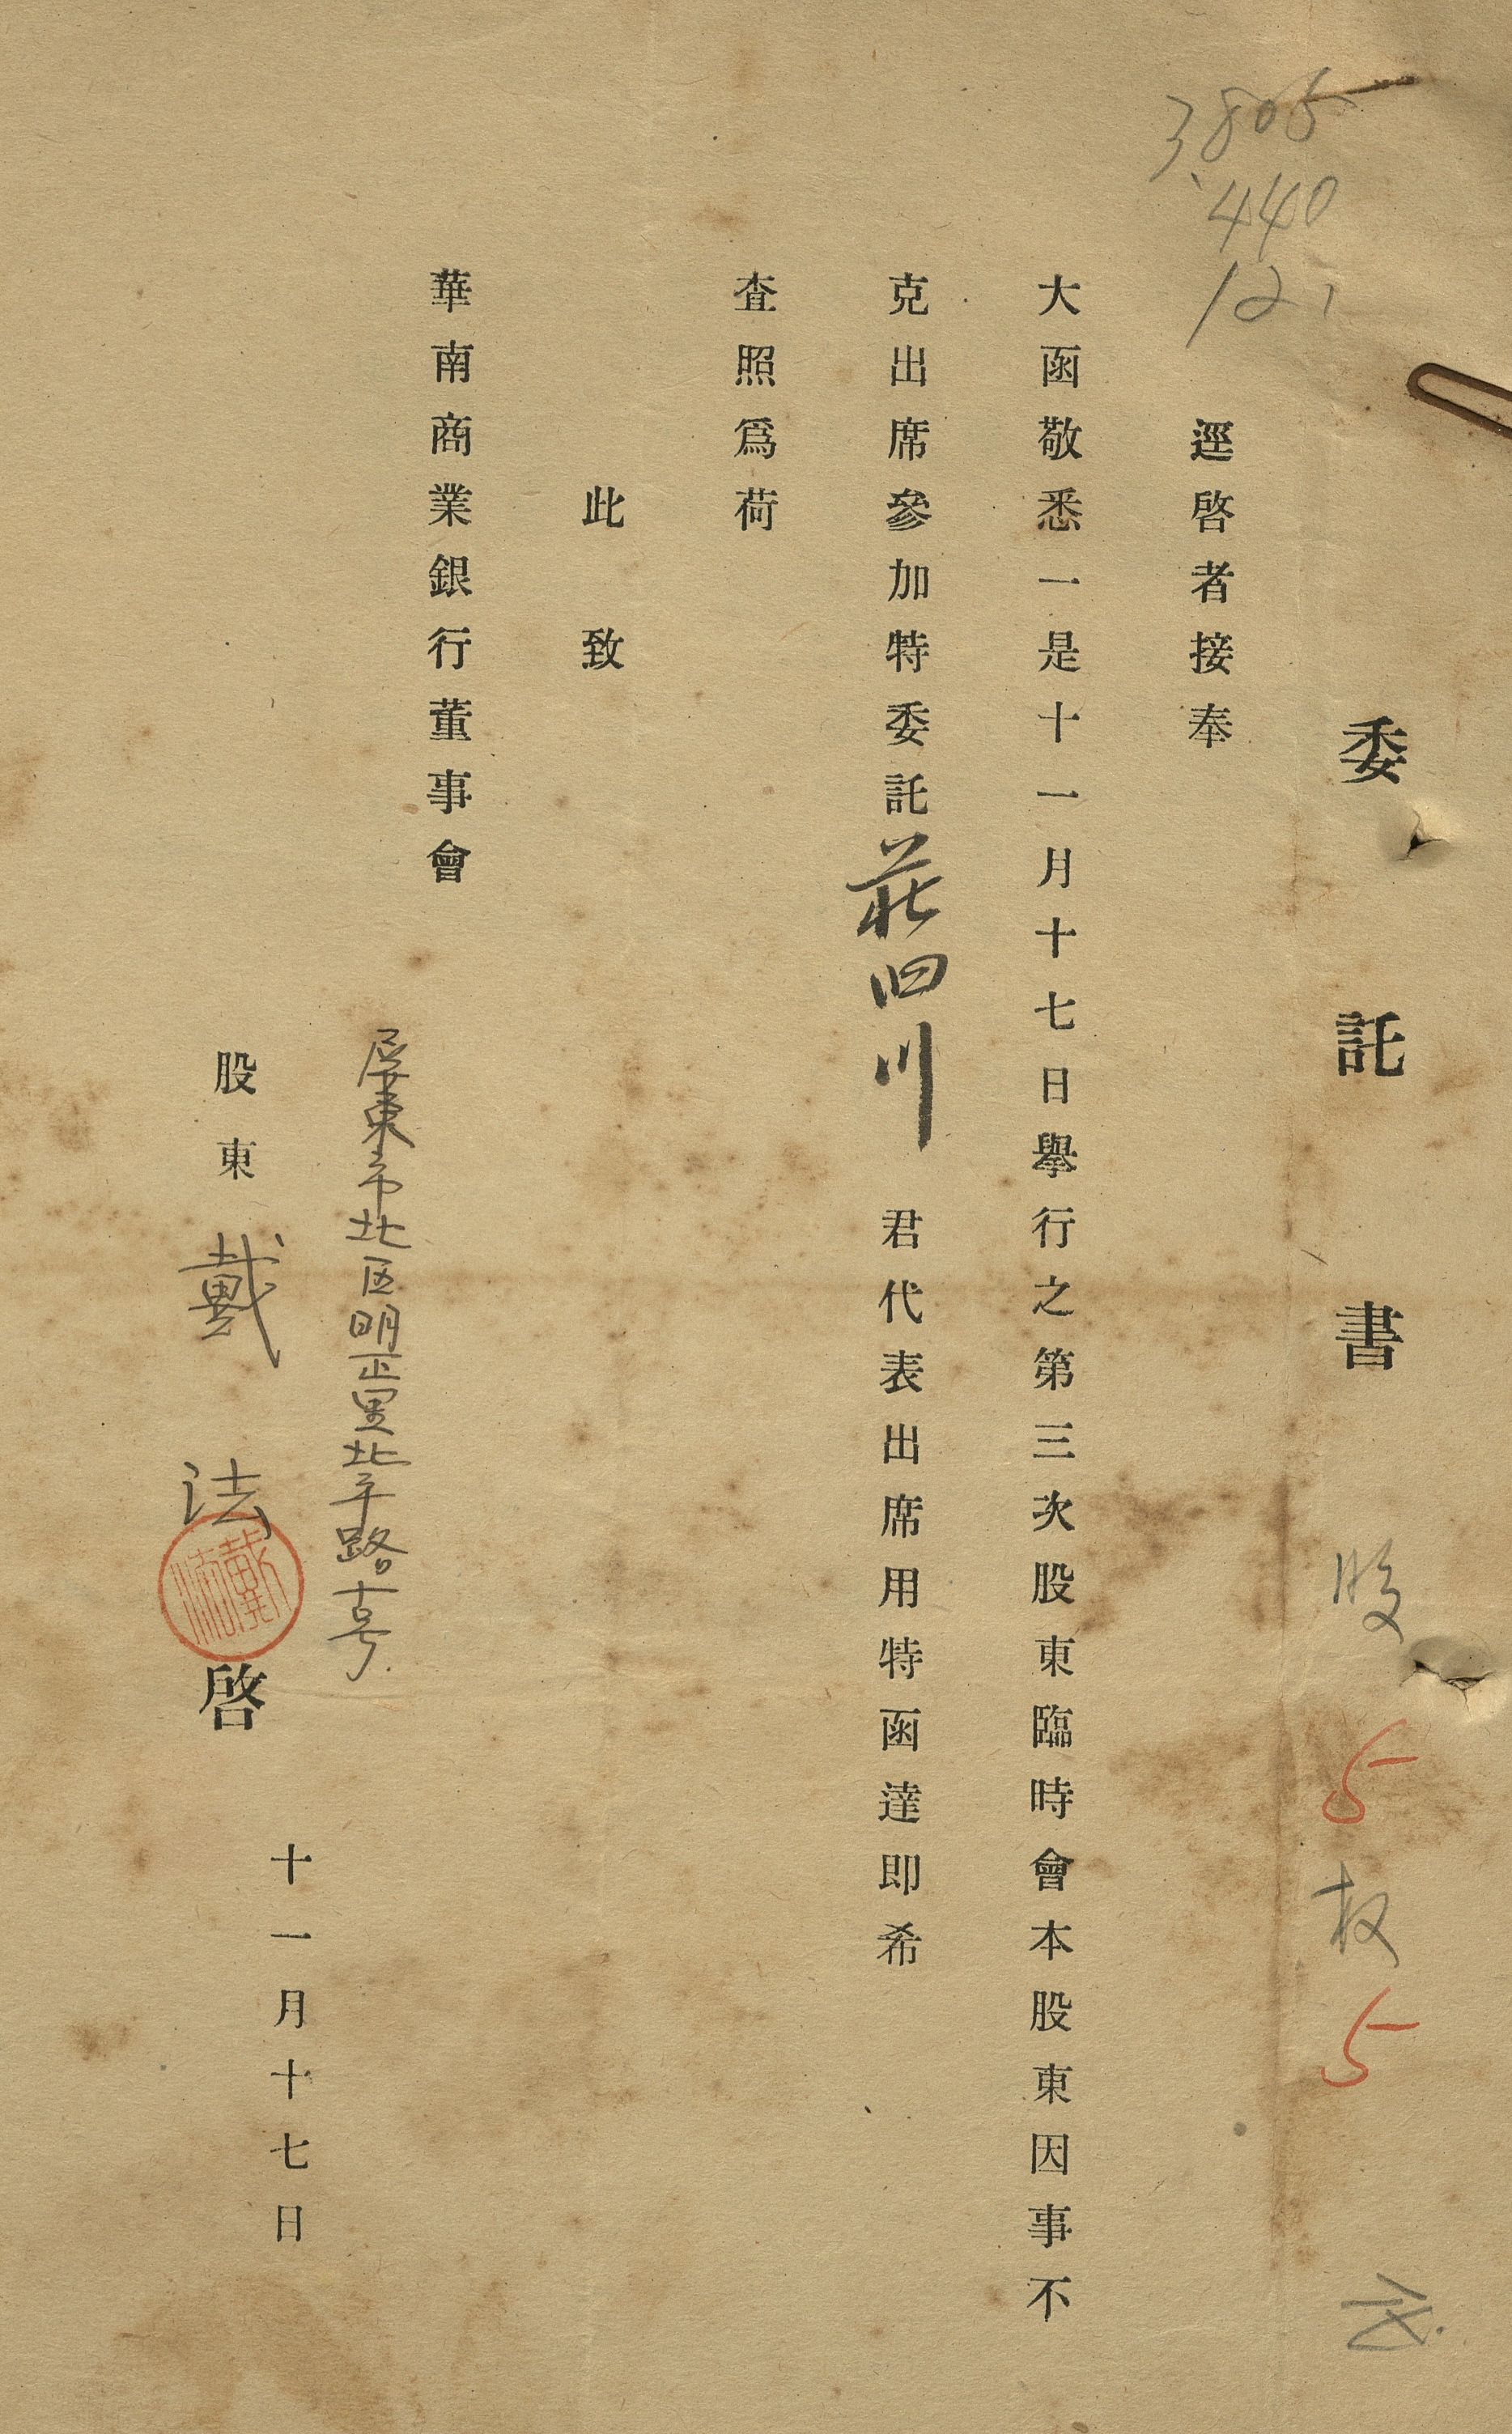 委託書 股 5 权 5
3,805
440
121
逕啓者接奉
大函敬悉一是十一月十七日舉行之第三次股東臨時會本股東因事不
克出席參加特委託莊四川 君代表出席用特函達即希
査照爲荷
此致
華南商業銀行董事會
屏東市北区明正里北平路十号
股東 戴 法 啓
十一月十七日